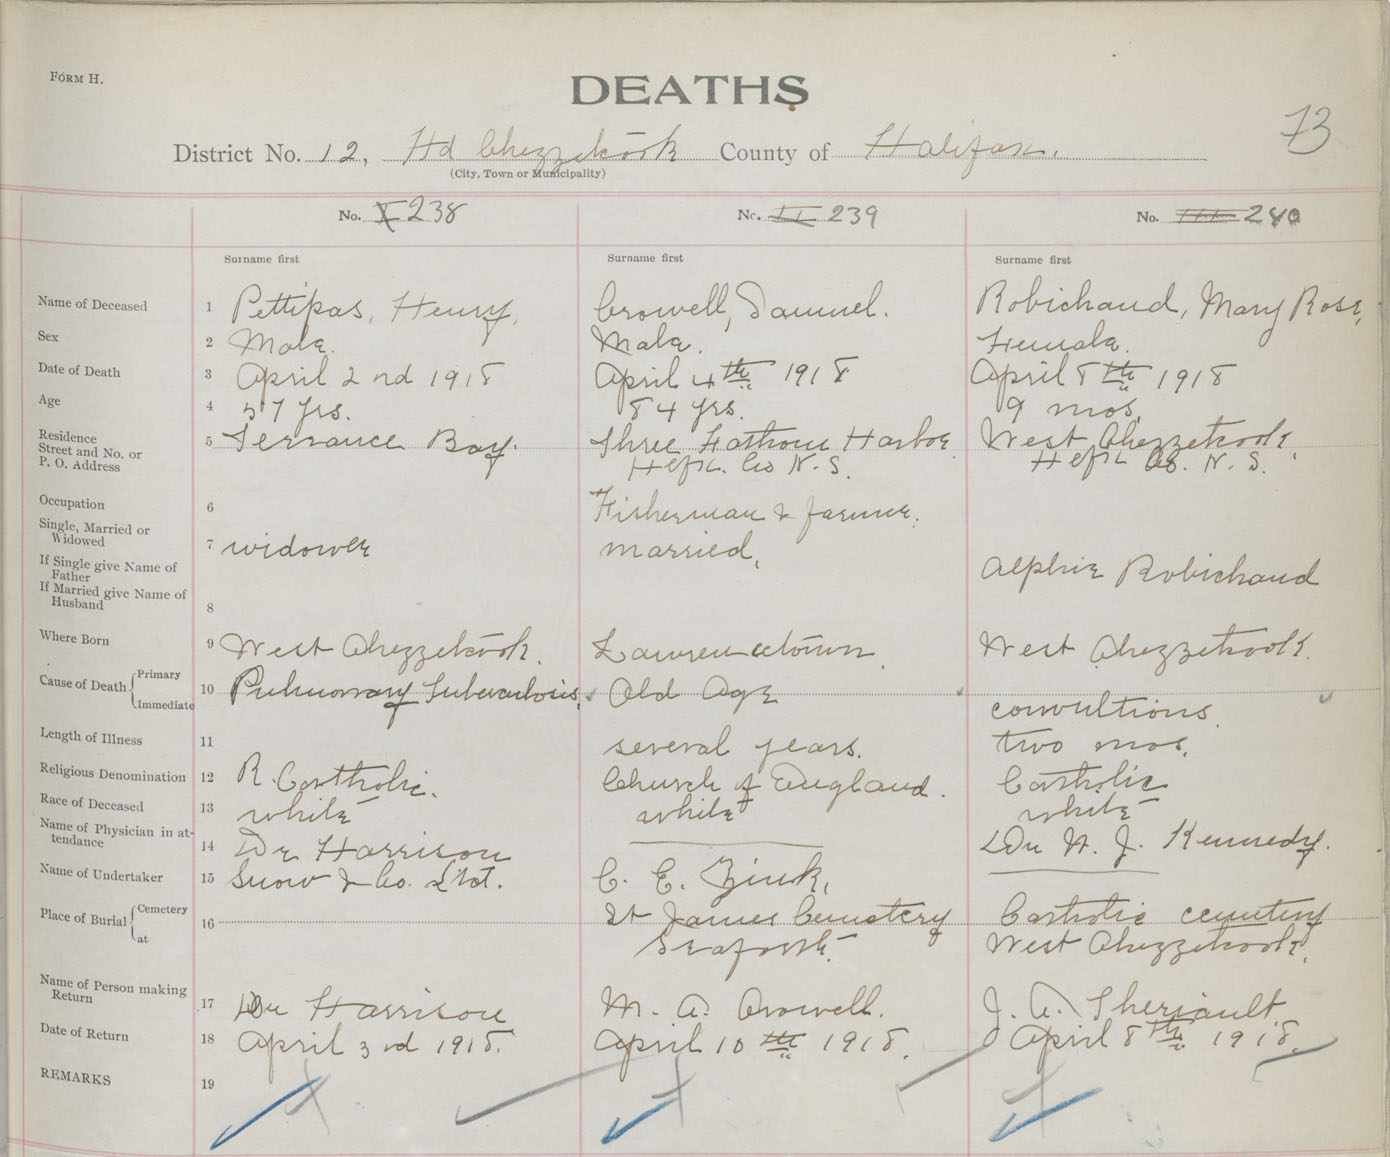 FORM H.
DEATHS
73
District No. 12, Hd Chezzetcook County of Halifax.
(City, Town or Municipality)
No. 238 No. 239 No. 240
Surname first Surname first Surname first
Name of Deceased 1 Pettipas, Henry, Crowell, Samuel. Robichaud, Mary Rose,
Sex 2 Male. Male. Female.
Date of Death 3 April 2nd 1918 April 4th 1918 April 8th 1918
Age 4 57 yrs. 84 yrs. 9 mos.
Residence Street and No. or P. O. Address 5 Terrance Bay. Three Fathom Harbor West Chezzetcook,
Hfx. Co N. S. Hfx Co. N. S.
Occupation 6 Fisherman & farmer.
Single, Married or Widowed 7 widower married,
If Single give Name of Father Alphie Robichaud
If Married give Name of Husband 8
Where Born 9 West Chezzetcook. Lawrencetown. West Chezzetcook.
Cause of Death Primary 10 Pulmonary Tuberculosis, Old Age
Immediate convultions.
Length of Illness 11 several years. two mos.
Religious Denomination 12 R. Catholic. Church of England. Catholic
Race of Deceased 13 white white white
Name of Physician in attendance 14 Dr Harrison Dr N. J. Kennedy.
Name of Undertaker 15 Snow & Co. Ltd. C. E. Zink,
Place of Burial Cemetery 16 St James Cemetery Catholic cemetery
at Seaforth. West Chezzetcook,
Name of Person making Return 17 Dr Harrison M. A. Crowell. J. A. Theriault
Date of Return 18 April 3rd 1918. April 10th 1918. April 8th 1918.
REMARKS 19